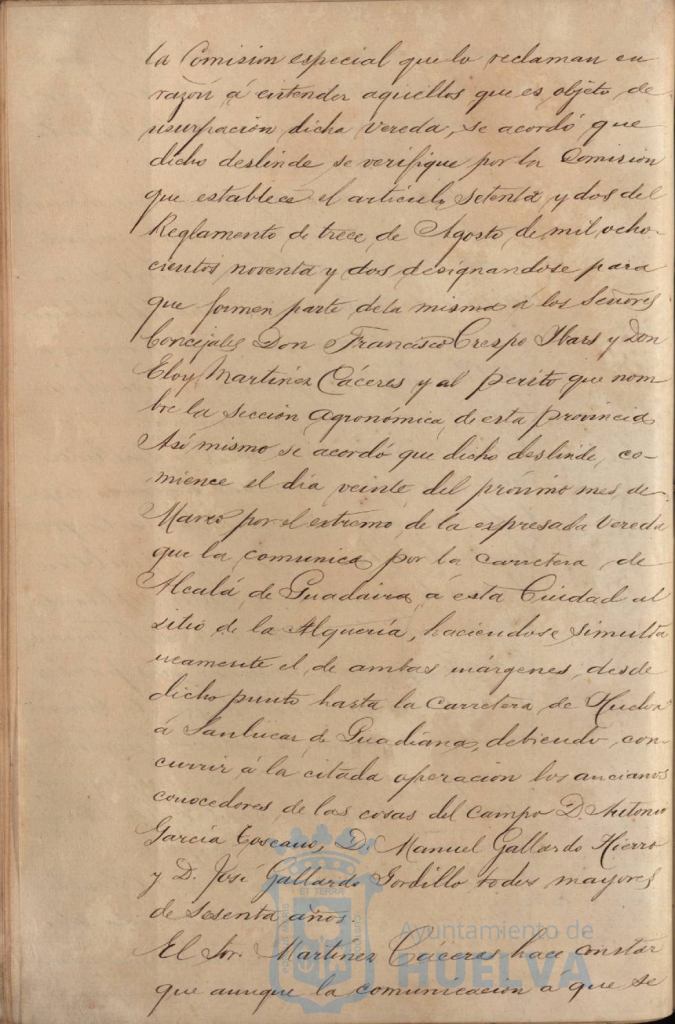 la Comision especial que lo reclaman en
razón á entender aquellos que es objeto de
usurpación dicha vereda, se acordó que
dicho deslinde se verifique por la Comision
que establece el artículo setenta y dos del
Reglamento de trece de Agosto de mil ocho-
cientos noventa y dos designandose para
que formen parte de la misma á los Señores
Concejales Don Francisco Crespo Ibars y Don
Eloy Martinez Cáceres y al perito que nom
bre la sección Agronómica de esta provincia
Asi mismo se acordó que dicho deslinde, co-
mience el día veinte del próximo mes de
Marzo por el extremo de la expresada vereda
que la comunica por la carretera de
Alcalá de Guadaira á esta Ciudad al
sitio de la Alquería, haciendose simulta
neamente el de ambas márgenes, desde
dicho punto hasta la carretera de Huelva
á Sanlucar de Guadiana, debiendo, con-
currir á la citada operación los ancianos
conocedores de las cosas del campo D. Antonio
García Toscano, D. Manuel Gallardo Hierro
y D. José Gallardo Gordillo todos mayores
de sesenta años.
El Sor. Martinez Cáceres hace constar
que aunque la comunicación á que se
Ayuntamiento de
HUELVA